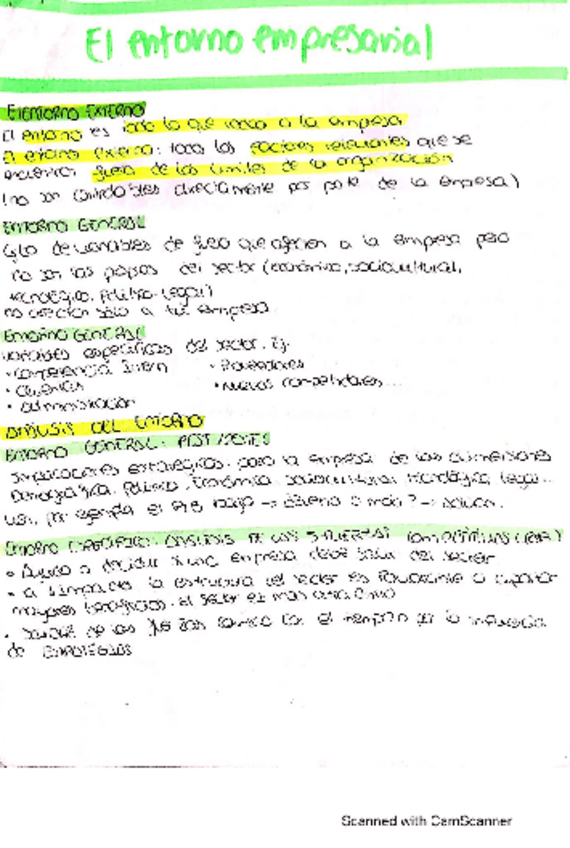 El entorno empresarial
El ENTORNO EXTERNO
El entorno es todo lo que rodea a la empresa
El entorno externo: todos los factores relevantes que se
encuentran fuera de los límites de la organización
(no son controlables directamente por parte de la empresa)
ENTORNO GENERAL
de variables de que afectan a la empresa pero
no son las propias del sector (económico, sociocultural,
tecnológico, Político-Legal)
no afectan sólo a tu empresa
ENTORNO GENERAL
variables específicas del sector. Ej:
• competencia • Proveedores
• clientes • Nuevos competidores...
• administración
ANÁLISIS DEL ENTORNO
ENTORNO GENERAL:
estratégicas para la empresa de las dimensiones
Demográfica, Política, Económica, sociocultural, tecnológica, legal...
por ejemplo el PIB bajo → ¿bueno o malo? →
ENTORNO ESPECÍFICO: ANÁLISIS DE LAS 5 FUERZAS COMPETITIVAS
• Ayuda a decidir si una empresa debe salir del sector
• la estructura del sector es favorable a
mayores beneficios, el sector es más atractivo
• de las con el tiempo por la influencia
de ESTRATEGIAS
Scanned with CamScanner